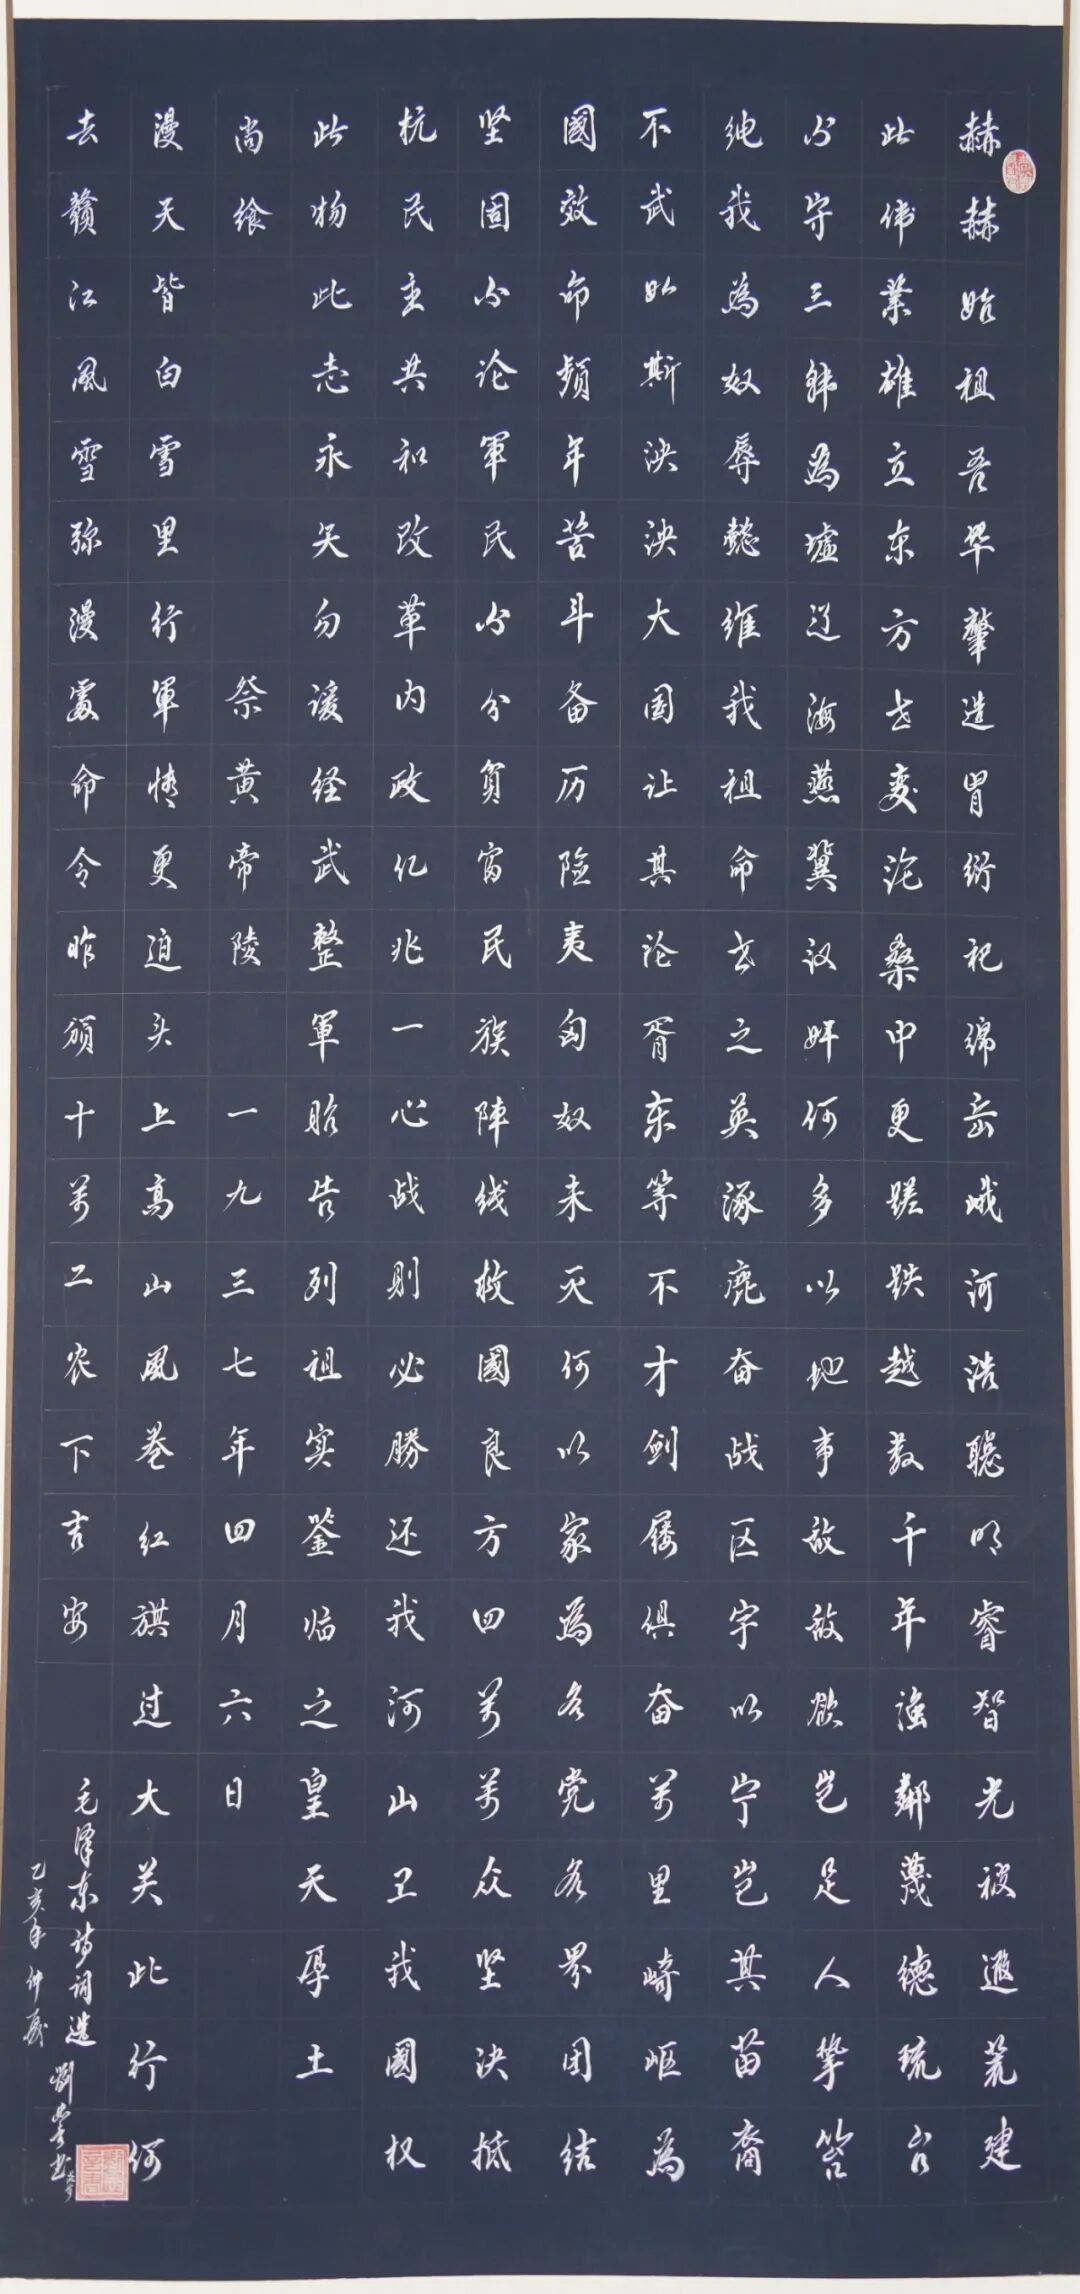 赫赫始祖吾华肇造胄衍祀绵岳峨河浩聪明睿智光被遐荒建
此伟業雄立东方世变沧桑中更蹉跌越数千年强鄰蔑德琉台
不守三韩為墟辽海燕冀汉奸何多以地事敌敌欲岂足人執笞
绳我為奴辱懿维我祖命世之英涿鹿奋战区宇以宁岂其苗裔
不武如斯泱泱大国让其沦胥东等不才剑屦俱奋萬里崎岖為
國效命频年苦斗备历险夷匈奴未灭何以家為各党各界团结
坚固不论軍民不分贫富民族阵线救國良方四萬萬众坚决抵
抗民主共和改革内政亿兆一心战则必勝还我河山卫我國权
此物此志永矢勿谖经武整軍昭告列祖实鉴临之皇天厚土
尚飨 祭黄帝陵 一九三七年四月六日
漫天皆白雪里行軍情更迫头上高山风卷红旗过大关此行何
去赣江风雪弥漫處命令昨颁十萬工农下吉安
毛泽东诗词选
乙亥年仲夏